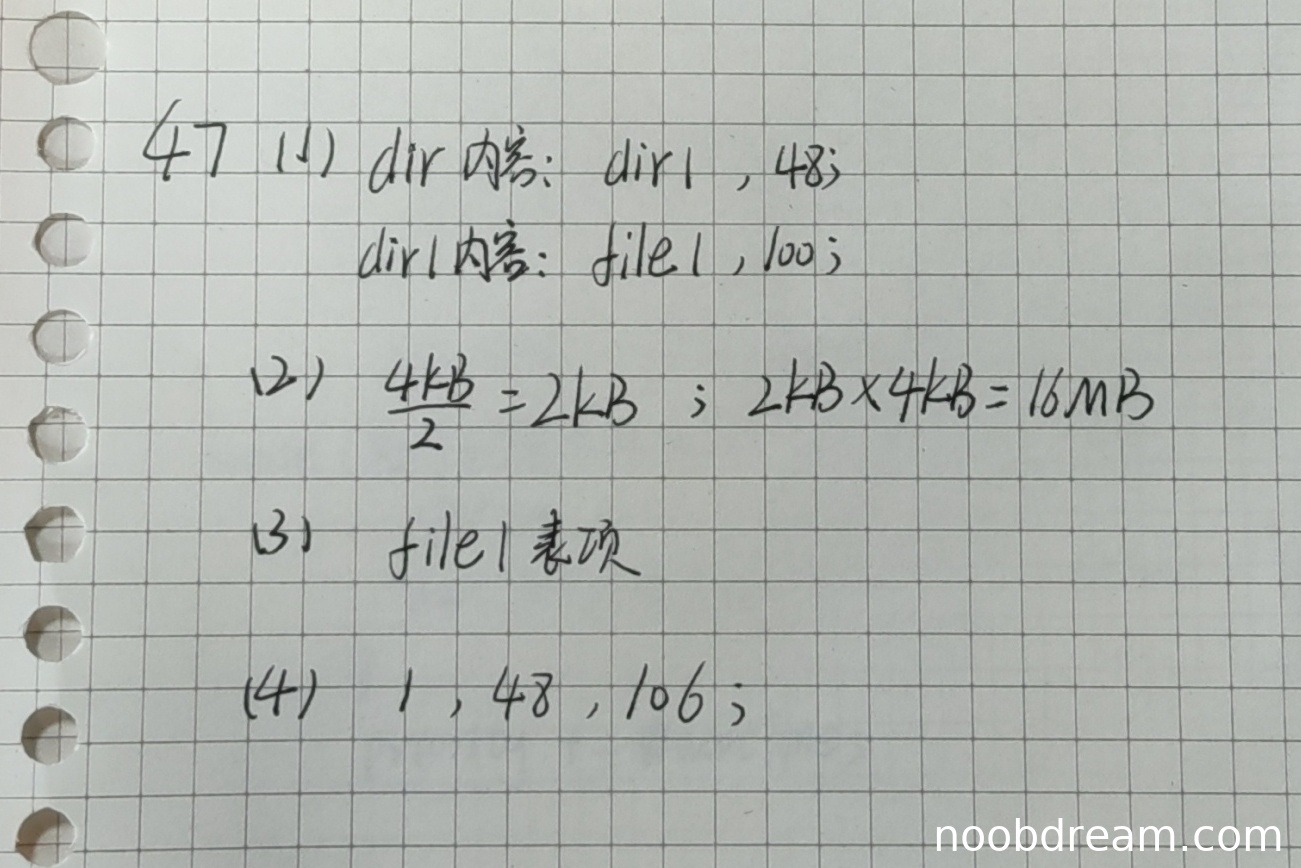 47 (1) dir内容: dir1 , 48;
dir1内容: file1 , 100;
(2) 4kB/2 = 2kB ; 2kB×4kB=16MB
(3) file1表项
(4) 1 , 48 , 106 ;
noobdream.com